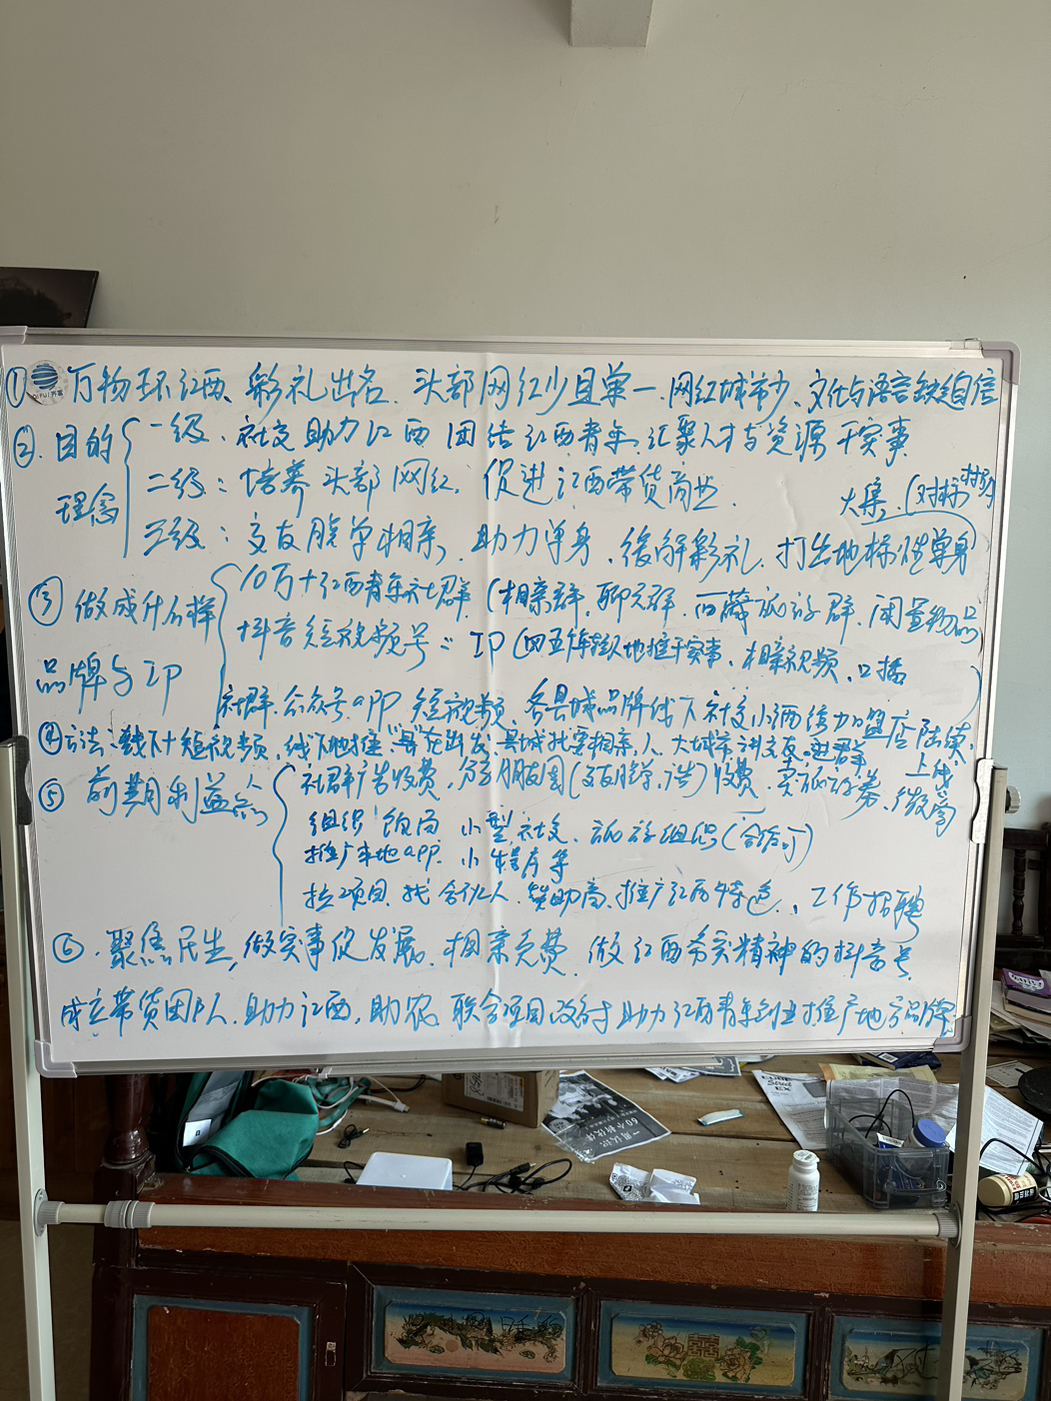 ① 万物环江西、彩礼出名、头部网红少且单一、网红城市少、文化与语言缺自信
② 目的 一级、社交助力江西 团结江西青年、汇聚人才与资源 干实事
理念 二级：培养头部网红，促进江西带货商业
大集（对标
三级：交友脱单相亲，助力单身、缓解彩礼、打出地标性单身
③ 做成什么样 10万+江西青年社群（相亲群、聊天群、西藏旅游群、闲置物品）
抖音短视频号：IP（地推干实事、相亲视频、口播
品牌与IP
社群、公众号、app、短视频、各县城品牌线下社交小酒馆加盟店陆续
上线
④ 方法：线下短视频，线下地推、县城我要相亲、大城市讲交友、进群
⑤ 前期利益点 社群广告收费，分享朋友圈（交友脱单广告）收费、
组织饭局 小型社交、旅游组织（合法可）
推广本地app、小程序等
拉项目、找合伙人、赞助商、推广江西特色、工作招聘
⑥、聚焦民生，做实事促发展、相亲免费、做江西务实精神的抖音号
成立带货团队、助力江西，助农、联合项目政府 助力江西青年创业推广地方品牌